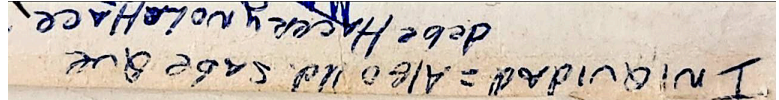 INIQUIDAD = Algo Ud. sabe que
debe Hacer y no la Hace